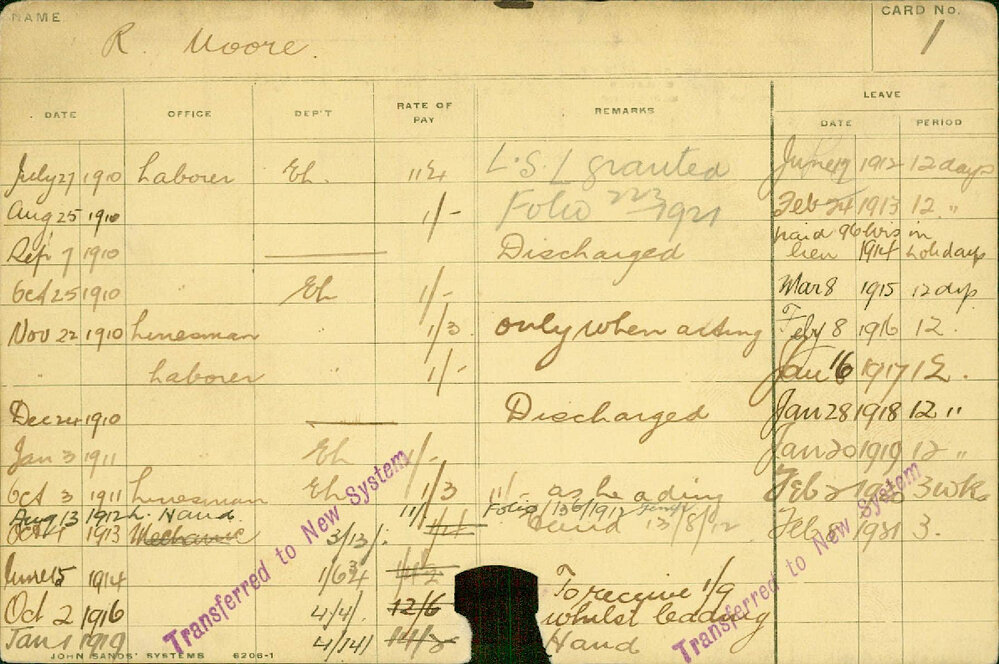 NAME
R. Moore.
CARD No.
1
DATE OFFICE DEP'T RATE OF PAY REMARKS LEAVE
DATE PERIOD
July 27 1910 Laborer Eh. L.S.L granted June 17 1912 12 days
Aug 25 1910 1/- Folio 223/1921 Feb 24 1913 12 "
Sep 7 1910 Discharged paid 96 hrs in
lieu 1914 holidays
Oct 25 1910 " Eh 1/- Mar 8 1915 12 dys
Nov 22 1910 Linesman 1/3 only when acting Feby 8 1916 12.
" Laborer 1/- Jan 16 1917 12.
Dec 24 1910 Discharged Jan 28 1918 12 "
Jan 3 1911 Eh 1/- Jan 20 1919 12 "
Oct 3 1911 Linesman Eh 1/3 11/- as heading Feb 2 1920 3 wks
Aug 13 1912 L. Hand 11/ Folio 136/1912
Oct 1 1913 Mechanic 3/13/. Hand 13/8/12 Feb 8 1921 3.
June 15 1914 To receive 1/9
Oct 2 1916 4/4/. 12/6 whilst leading
Jan 1 1919 4/14/ Hand
Transferred to New System
Transferred to New System
JOHN SANDS' SYSTEMS 6206-1